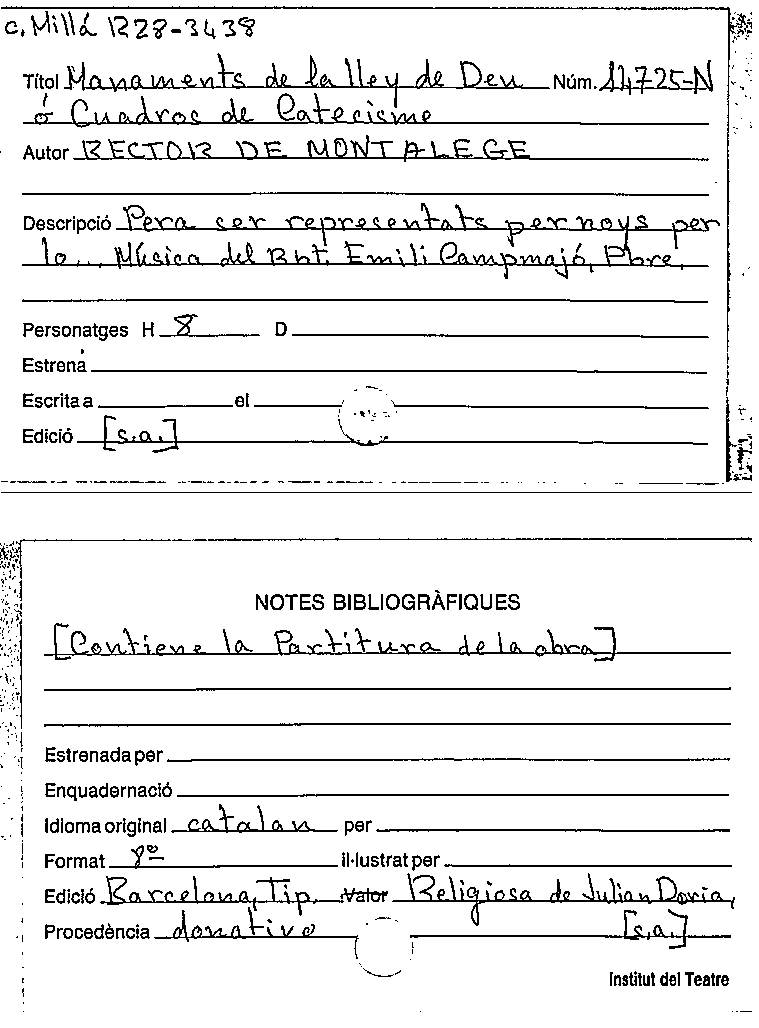 c. Millá 1228-3438
Títol Manaments de la lley de Deu Núm. 14725-N
ó Cuadros de Catecisme
Autor RECTOR DE MONTALEGE
Descripció Pera ser representats per noys per
lo... Música del Rnt. Emili Campmajó, Pbre.
Personatges H 8 D
Estrená
Escrita a el
Edició [s.a.]
NOTES BIBLIOGRÀFIQUES
[Contiene la Partitura de la obra]
Estrenada per
Enquadernació
Idioma original catalan per
Format 8º il·lustrat per
Edició Barcelona, Tip. Valor Religiosa de Julian Doria,
Procedència donativo [s.a.]
Institut del Teatre